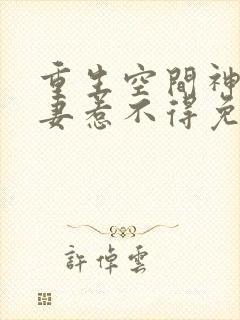 重生空間神
妻惹不得免
許倬雲